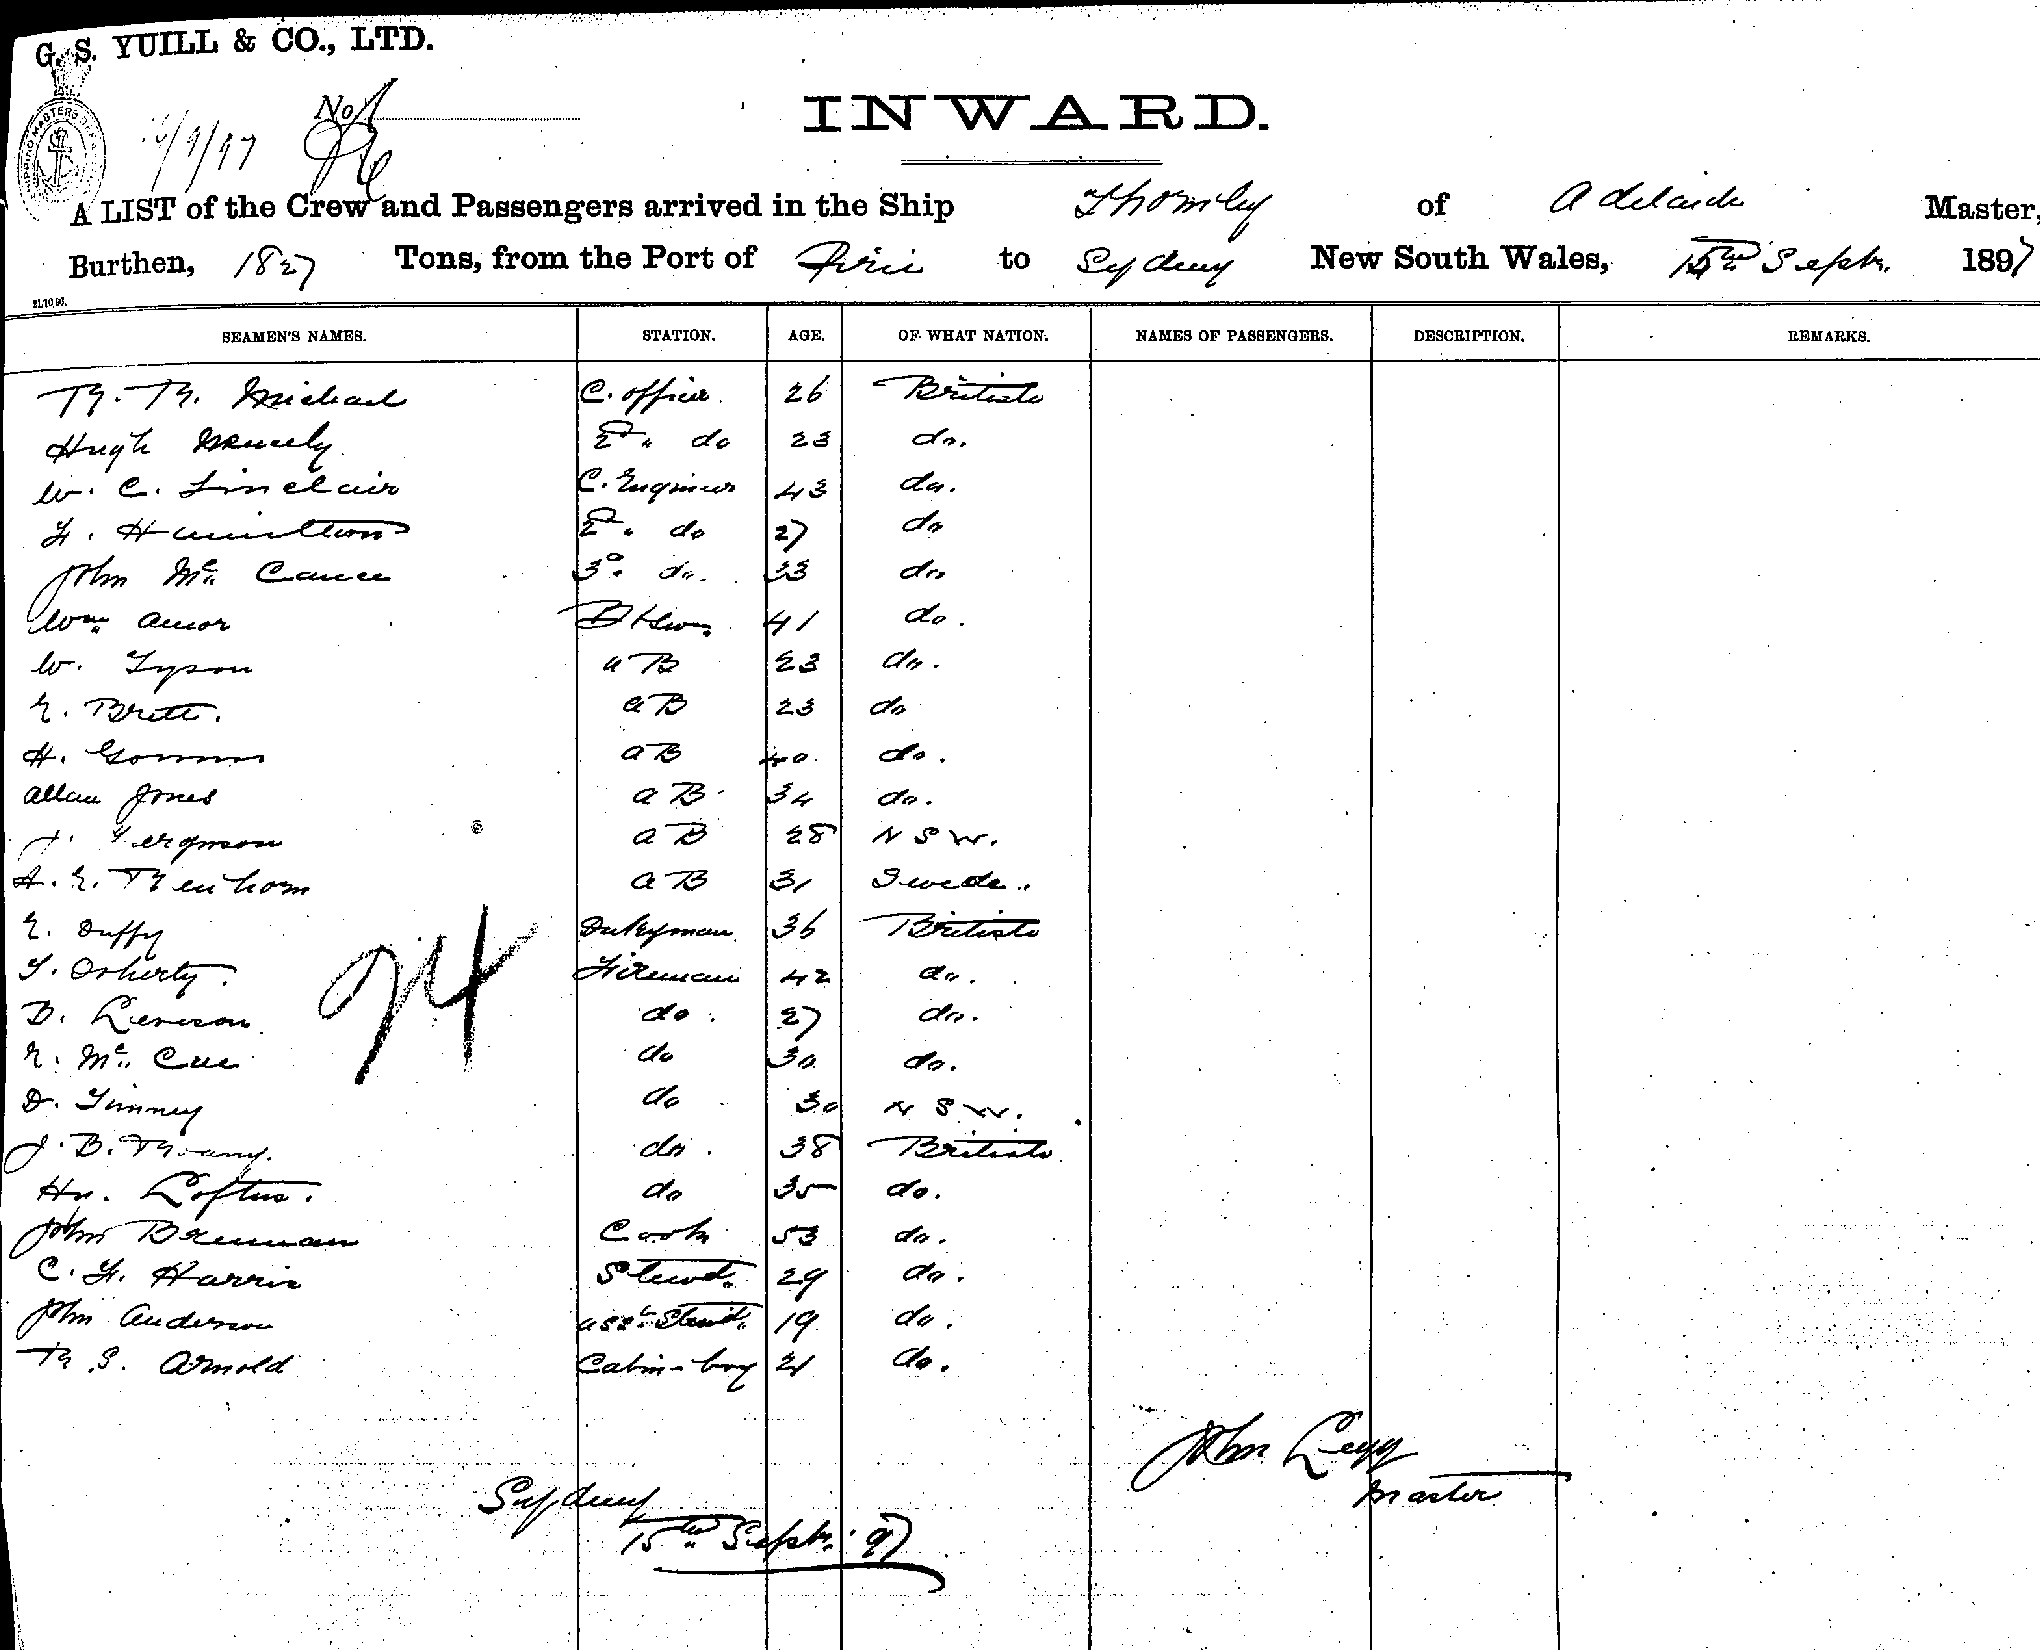 G. S. YUILL & CO., LTD.
No. 1
INWARD.
16/9/97
A LIST of the Crew and Passengers arrived in the Ship Thornley of Adelaide Master,
Burthen, 1827 Tons, from the Port of Pirie to Sydney New South Wales, 15th Septr. 1897
21.10.96.
SEAMEN'S NAMES. STATION. AGE. OF WHAT NATION. NAMES OF PASSENGERS. DESCRIPTION. REMARKS.
Michael C. officer. 26 British
Hugh 2d. do 23 do.
W. C. Sinclair C. Engineer 43 do.
F. Hamilton 2d. do 27 do
John Mc. Cance 3d. do. 33 do
Wm. Amor Btswn. 41 do.
W. Tyson AB 23 do.
E. Brett. AB 23 do
H. AB 40. do.
Allan Jones AB. 34 do.
J. Ferguson AB 28 N S W.
A. E. AB 31 Swede.
E. Duffy Dnkyman 36 British
T. Doherty. Fireman 42 do.
D. Leveson. do. 27 do.
E. Mc. Cue do 30 do.
D. Timney do 30 N S W.
J. B. do. 38 British
Hy. Loftus. do 35 do.
John Brennan Cook 53 do.
C. F. Harris Stewd. 29 do.
John Anderson Asst. Stewd. 19 do.
S. Arnold Cabin-boy 21 do.
24
John Legg
Master
Sydney
15th Septr. 97